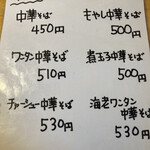 中華そば
450円
もやし中華そば
500円
ワンタン中華そば
510円
煮玉子中華そば
500円
チャーシュー中華そば
530円
海老ワンタン
中華そば
530円